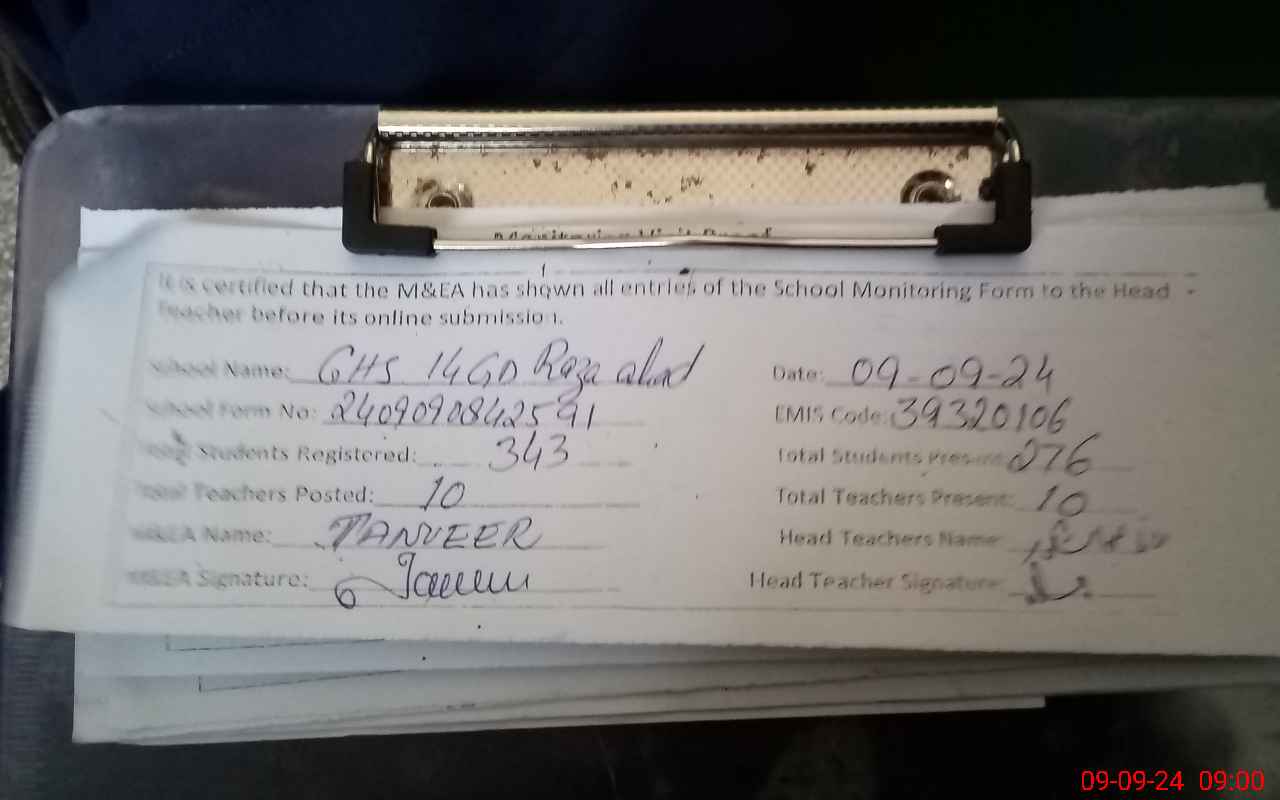 Monitoring Visit Proof
It is certified that the M&EA has shown all entries of the School Monitoring Form to the Head
Teacher before its online submission.
School Name: GHS 14GD Raza abad Date: 09-09-24
School Form No: 24090908842591 EMIS Code: 39320106
Total Students Registered: 343 Total Students Present: 276
Total Teachers Posted: 10 Total Teachers Present: 10
M&EA Name: TANVEER Head Teachers Name:
M&EA Signature: Head Teacher Signature:
09-09-24 09:00